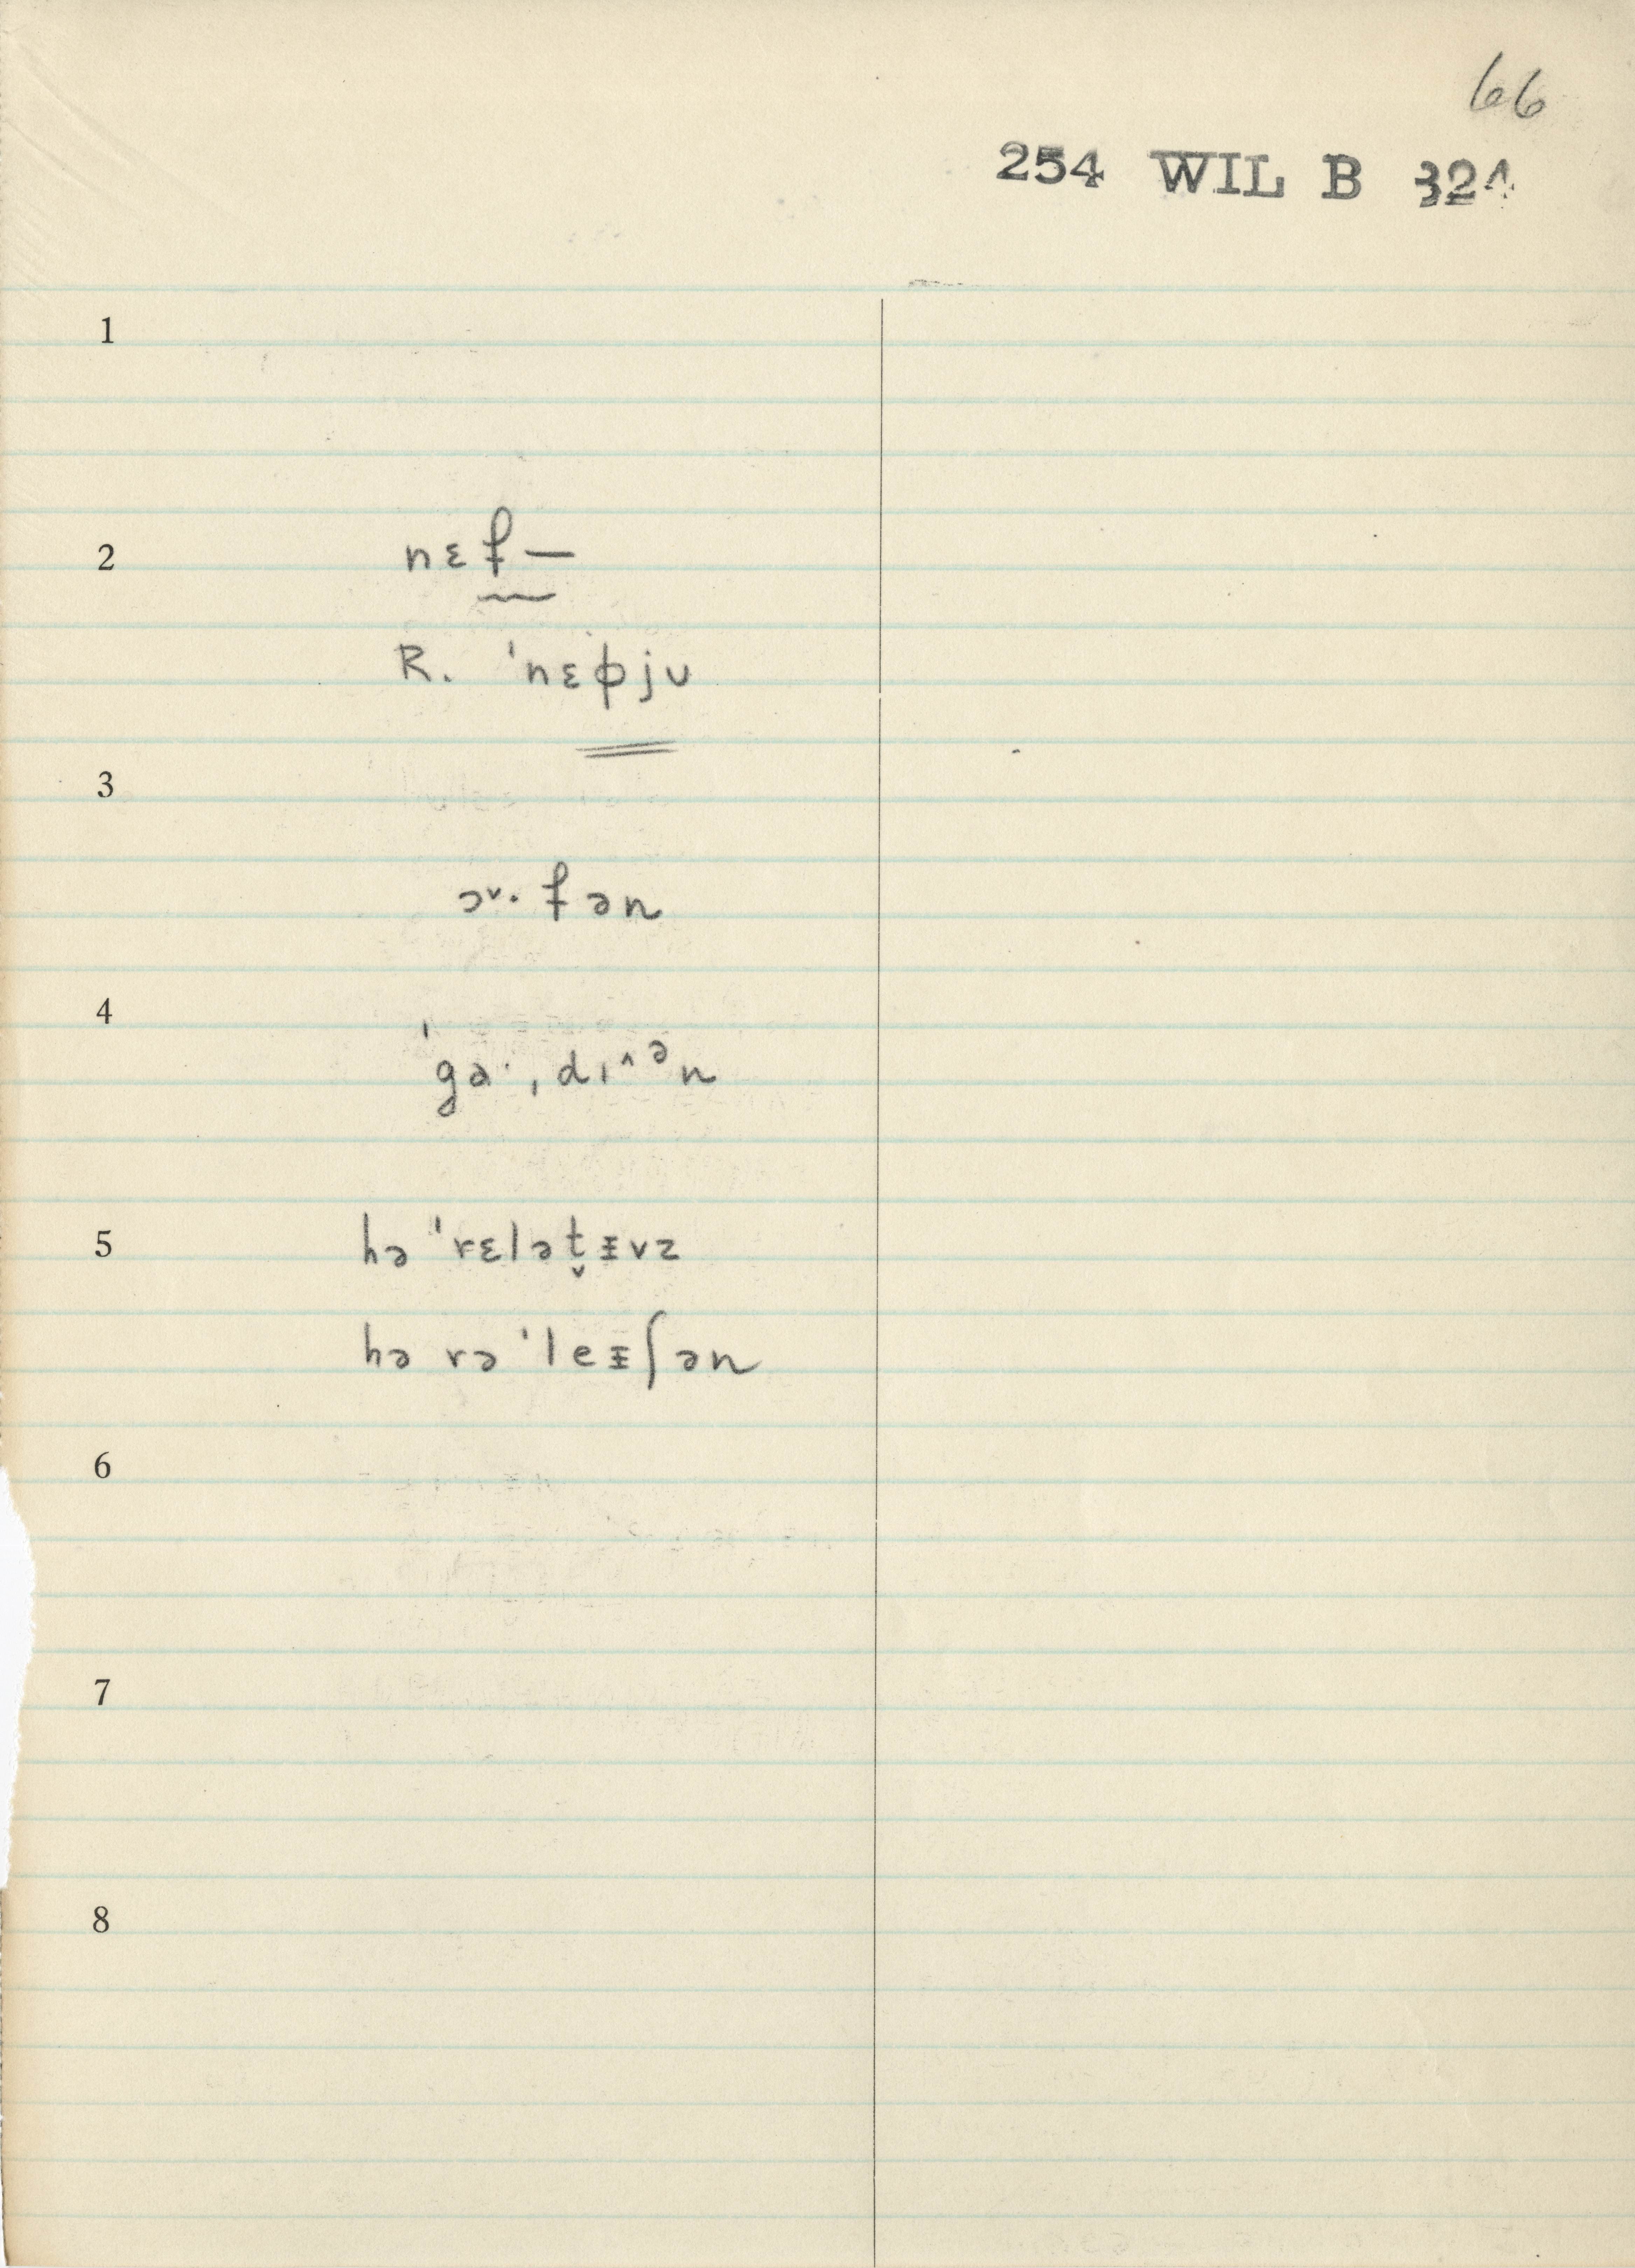 66
254 WIL B 324
1
2 nɛf —
R. ˈnɛɸjʊ
3
ɔ˅· fən
4
ˈgɑ·ˌdɪ^ᵊn
5 hə ˈrɛlət̬ᵻvz
hə rə ˈleᵻʃən
6
7
8